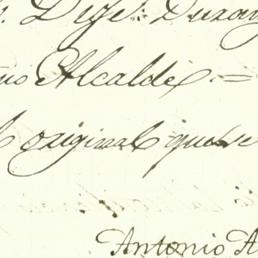 Dige: Duran
mo Alcalde =
original que se
Antonio A